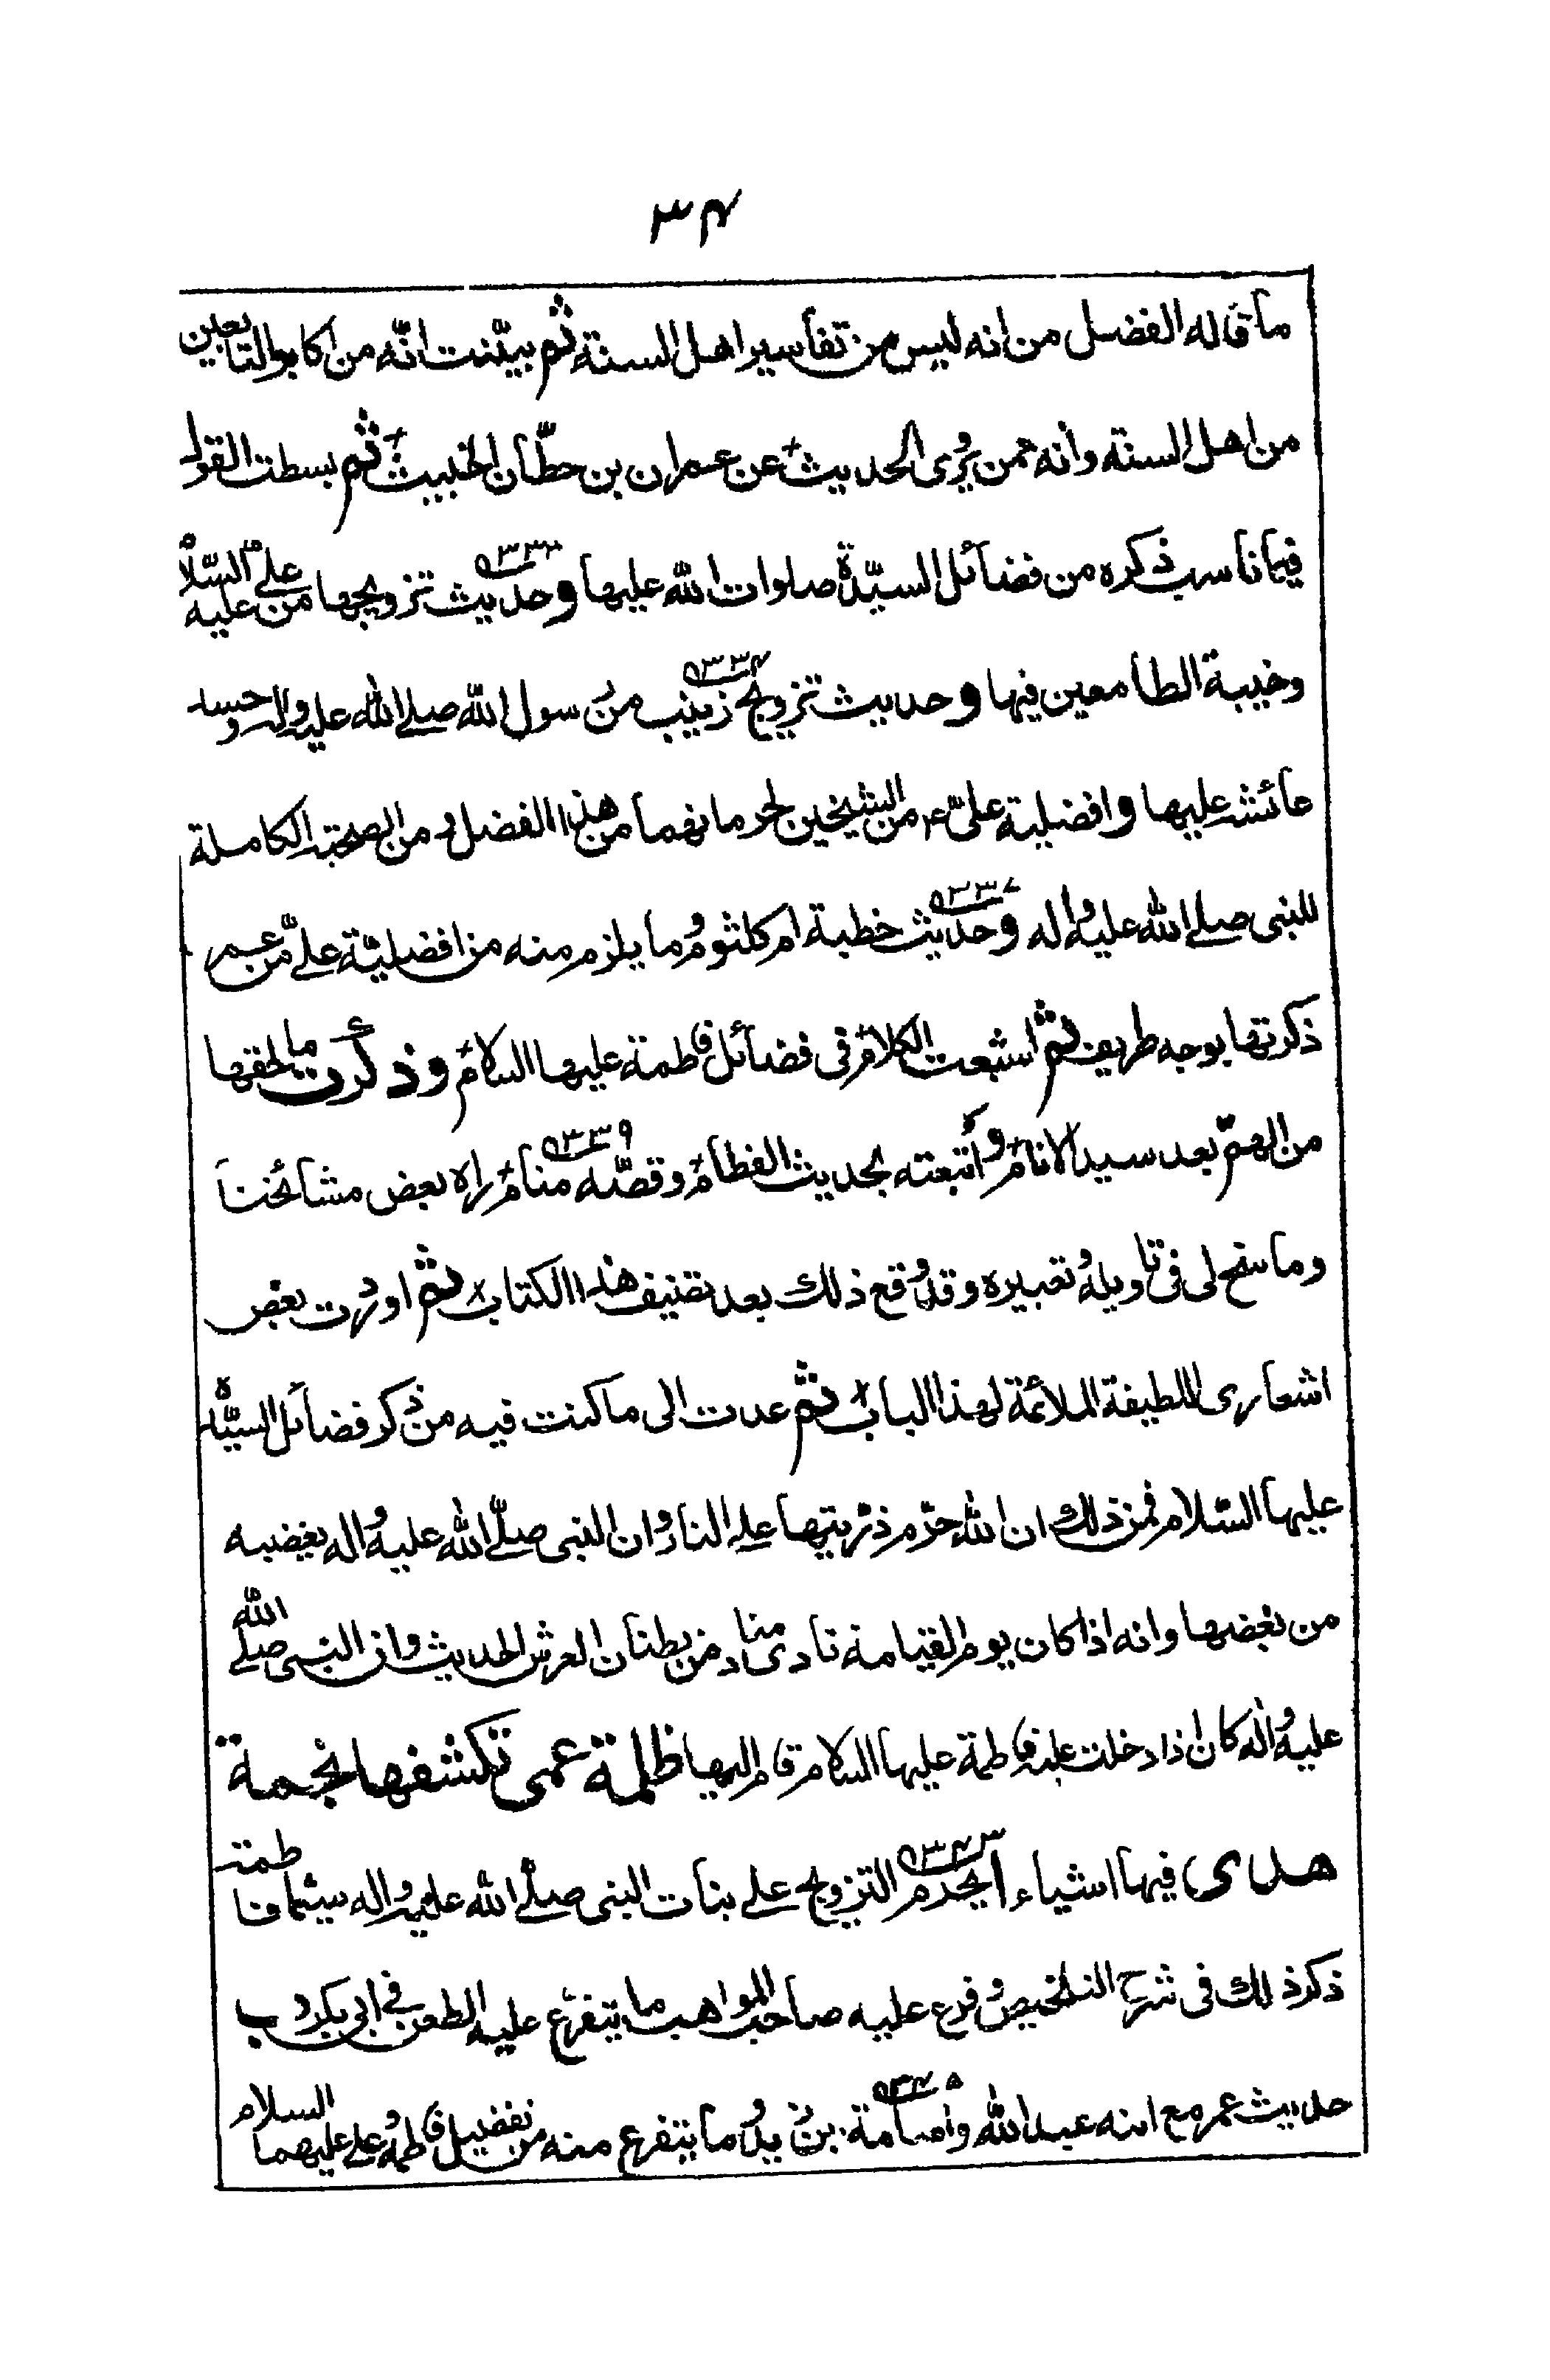 ۳۴
ما قاله الفضل من انه ليس من تفاسير اهل السنة ثم بيّنت انّه من اكابر التابعين
من اهل السنة وانه ممن يروى الحديث عن عمران بن حطّان الخبيث ثم بسطت القول
فيما ناسب ذكره من فضائل السيّدة صلوات الله عليها وحديث ۵۳۳۲ تزويجها من علے عليه السّلام
وخيبة الطامعين فيها وحديث تزويج ۵۳۳۴ زينب من رسول الله صلے الله عليه واله وحسد
عائشه عليها وافضلية علىّ ۴ من الشيخين لحرمانهما من هذا الفضل ومن الصحبة الكاملة
للنبى صلے الله عليه واله وحديث ۵۳۳۷ خطبة ام كلثوم وما يلزم منه من افضليّة علىّ من عمر
ذكرتها بوجه طريف ثم اشبعت الكلام فى فضائل فاطمة عليها السلام وذكرت ما لحقها
من الهمّ بعد سيد الانام واتبعته بحديث الفطام وقصّه ۵۳۳۹ منام راه بعض مشائخنا
وما سنح لى فى تاويله وتعبيره وقد وقع ذلك بعد تصنيف هذا الكتاب ثم اوردت بعض
اشعارى اللطيفة الملائمة لهذا الباب ثم عدت الى ما كنت فيه من ذكر فضائل السيّدة
عليها السّلام فمن ذلك ان الله حرّم ذرّيتها علے النار وان النبى صلّے الله عليه واله يغضبه
من يغضبها وانه اذا كان يوم القيامة نادى مناد من بطنان العرش الحديث وان النبى صلے الله
عليه واله كان اذا دخلت عليه فاطمة عليها السلام قام اليها ظلمة عمى تكشفها نجمة
هدى فيها اشياء ا يحرم ۵۳۴۳ التزويج علے بنات النبى صلے الله عليه واله سيّما فاطمة
ذكر ذلك فى شرح التلخيص وفرع عليه صاحب المواهب ما يتفرّع عليه الطعن فى ابى بكر د ب
حديث عمر مع ابنه عبد الله واسامة ۵۳۴۵ بن زيد وما يتفرع منه من تفضيل فاطمة وعلے عليهما السلام